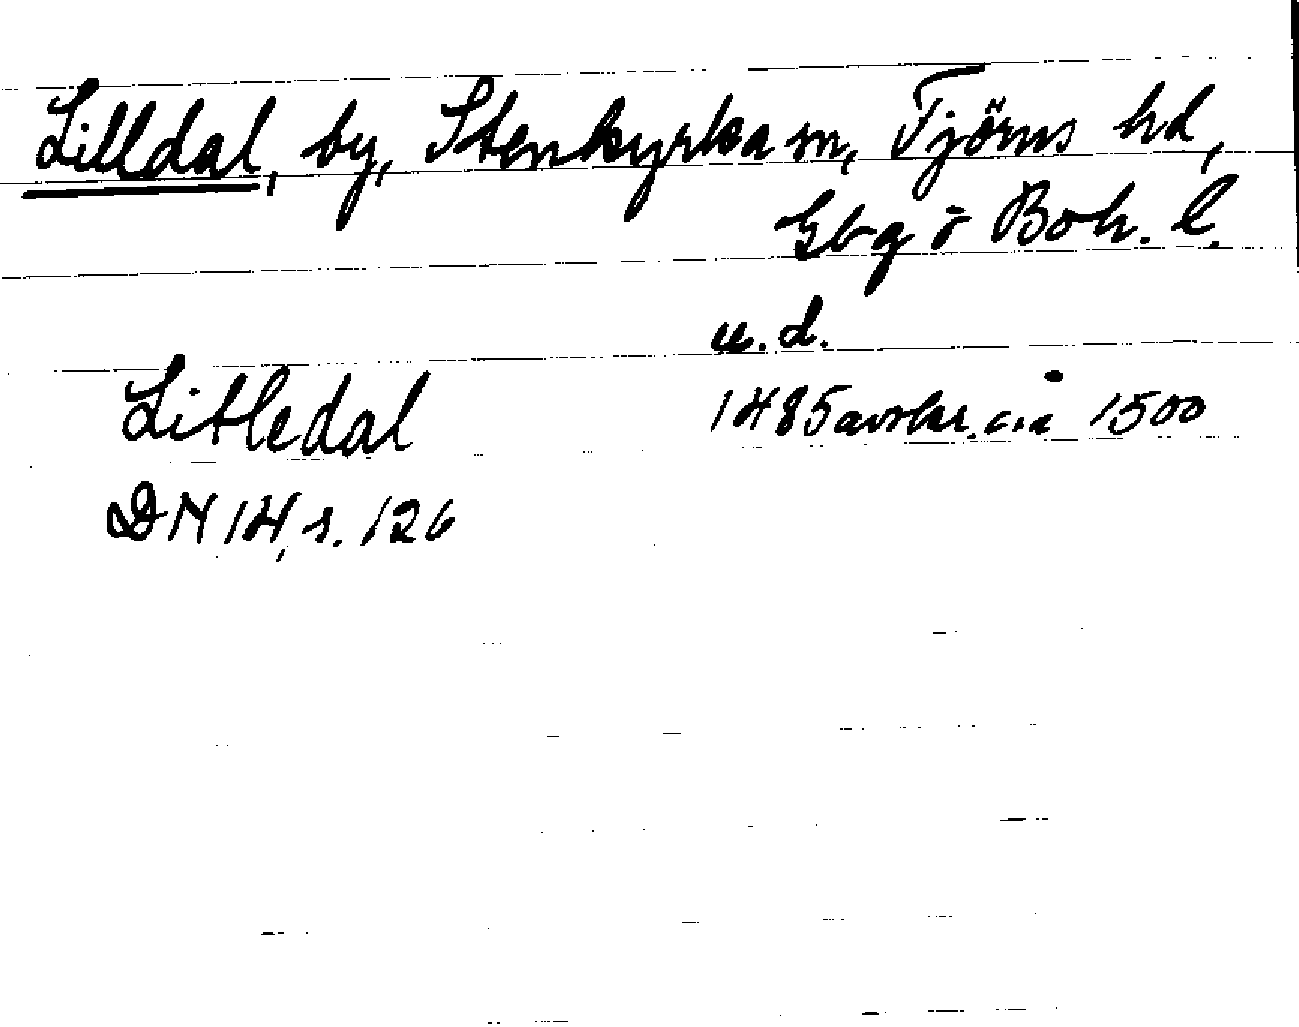 Lilldal, by, Stenkyrka sn, Tjörns hd,
Gbg o Boh. l.
u. d.
Litledal 1485 avskr. cia 1500
DN 14, s. 126